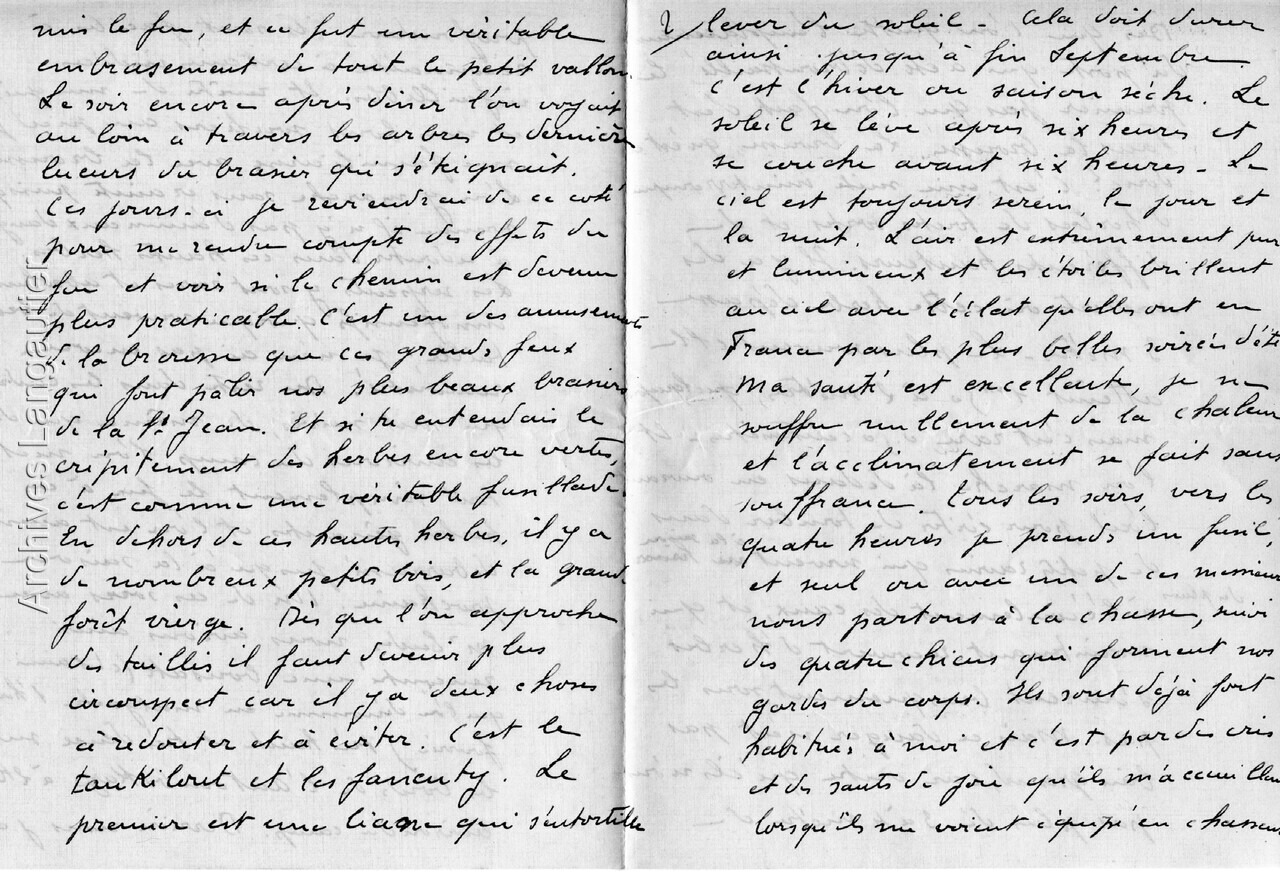 mis le feu, et ce fut un véritable
embrasement de tout le petit vallon.
Le soir encore après diner l'on voyait
au loin à travers les arbres les dernières
lueurs du brasier qui s'éteignait.
Ces jours-ci je reviendrai de ce coté
pour me rendre compte des effets du
feu et voir si le chemin est devenu
plus praticable. C'est un des amusements
de la brousse que ces grands feux
qui font pâlir nos plus beaux brasiers
de la St Jean. Et si tu entendais le
crépitement des herbes encore vertes,
c'est comme une véritable fusillade.
En dehors de ces hautes herbes, il y a
de nombreux petits bois, et la grande
forêt vierge. Dès que l'on approche
des taillis il faut devenir plus
circonspect car il y a deux choses
à redouter et à éviter. C'est le
tankilout et les fanenty. Le
premier est une liane qui s'entortille
2/ lever du soleil - Cela doit durer
ainsi jusqu'à fin Septembre.
C'est l'hiver ou saison sèche. Le
soleil se lève après six heures et
se couche avant six heures - Le
ciel est toujours serein, le jour et
la nuit. L'air est extrèmement pur
et lumineux et les étoiles brillent
au ciel avec l'éclat qu'elles ont en
France par les plus belles soirées d'été
Ma santé est excellente, je ne
souffre nullement de la chaleur
et l'acclimatement se fait sans
souffrance. Tous les soirs, vers les
quatre heures je prends un fusil,
et seul ou avec un de ces messieurs
nous partons à la chasse, suivi
des quatre chiens qui forment nos
gardes du corps. Ils sont déjà fort
habitués à moi et c'est par des cris
et des sauts de joie qu'ils m'accueillent
lorsqu'ils me voient équipé en chasseur
Archives Langautier